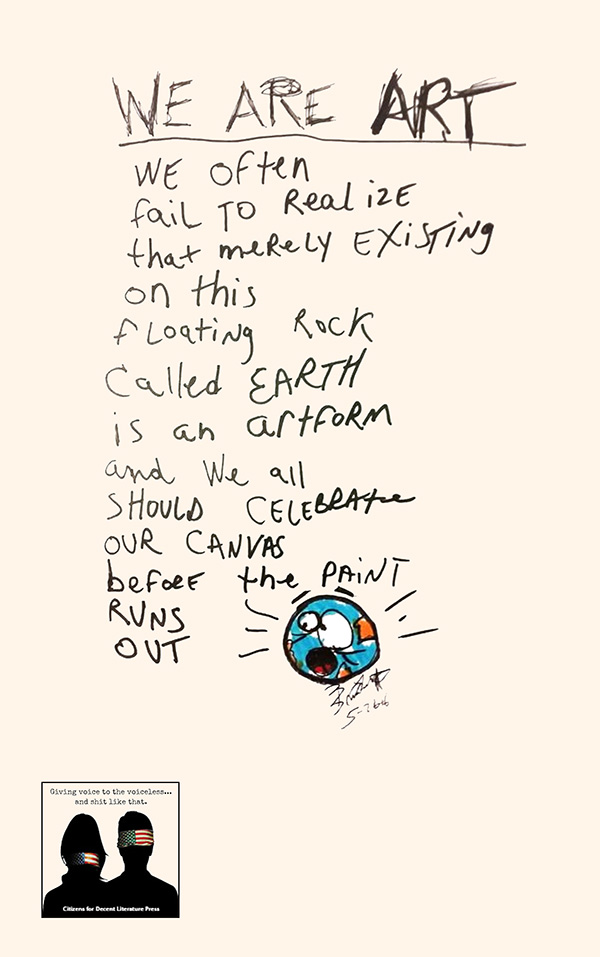 WE ARE ART
WE often
fail TO Realize
that meRely EXiSTiNg
on this
fLoatiNg RocK
Called EARTH
is an artfoRM
and We all
SHOULD CELEBRAte
OUR CANVAS
befoRE the PAiNT
RUNS
OUT
Giving voice to the voiceless...
and shit like that.
Citizens for Decent Literature Press